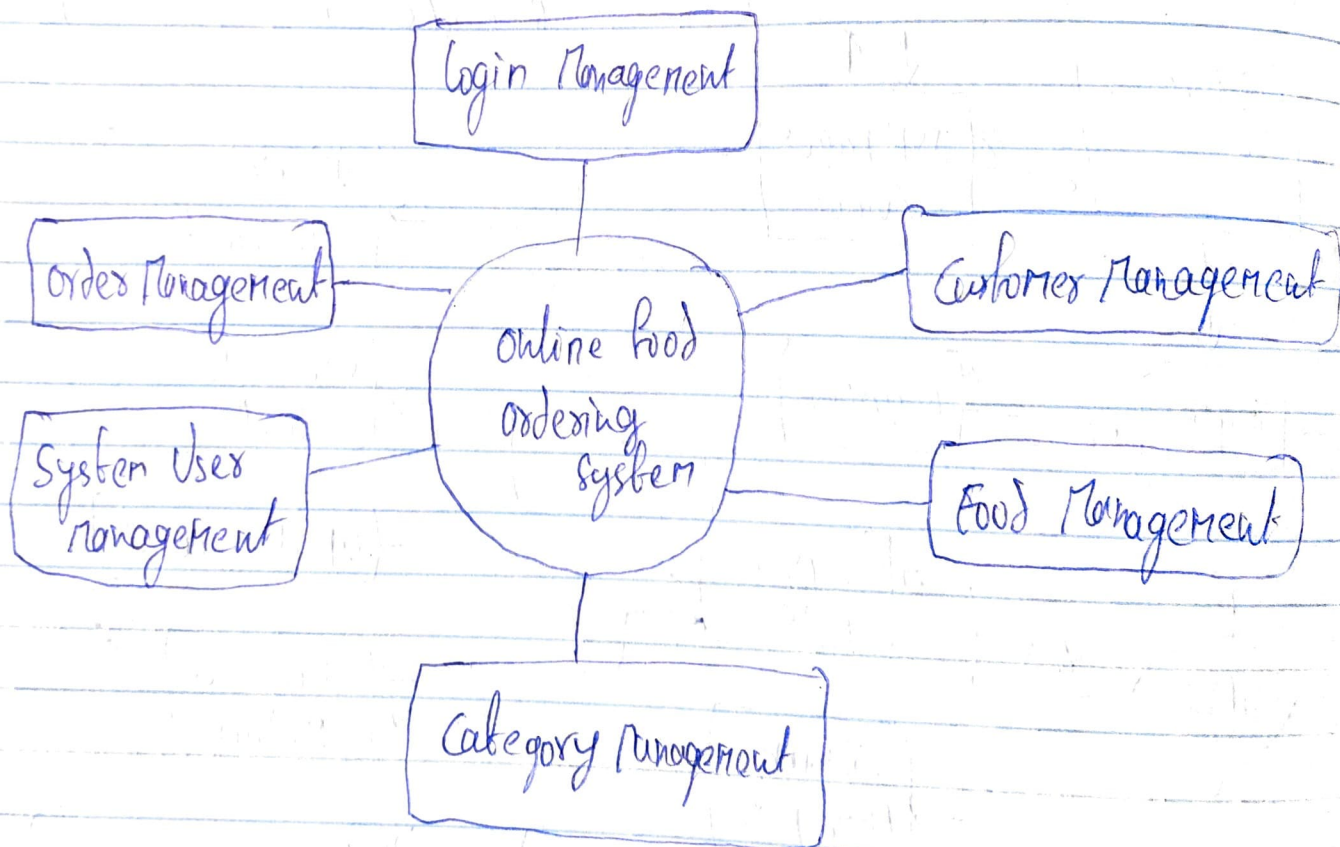 Login Management
Order Management
Customer Management
online food
ordering
system
System User
management
Food Management
Category Management